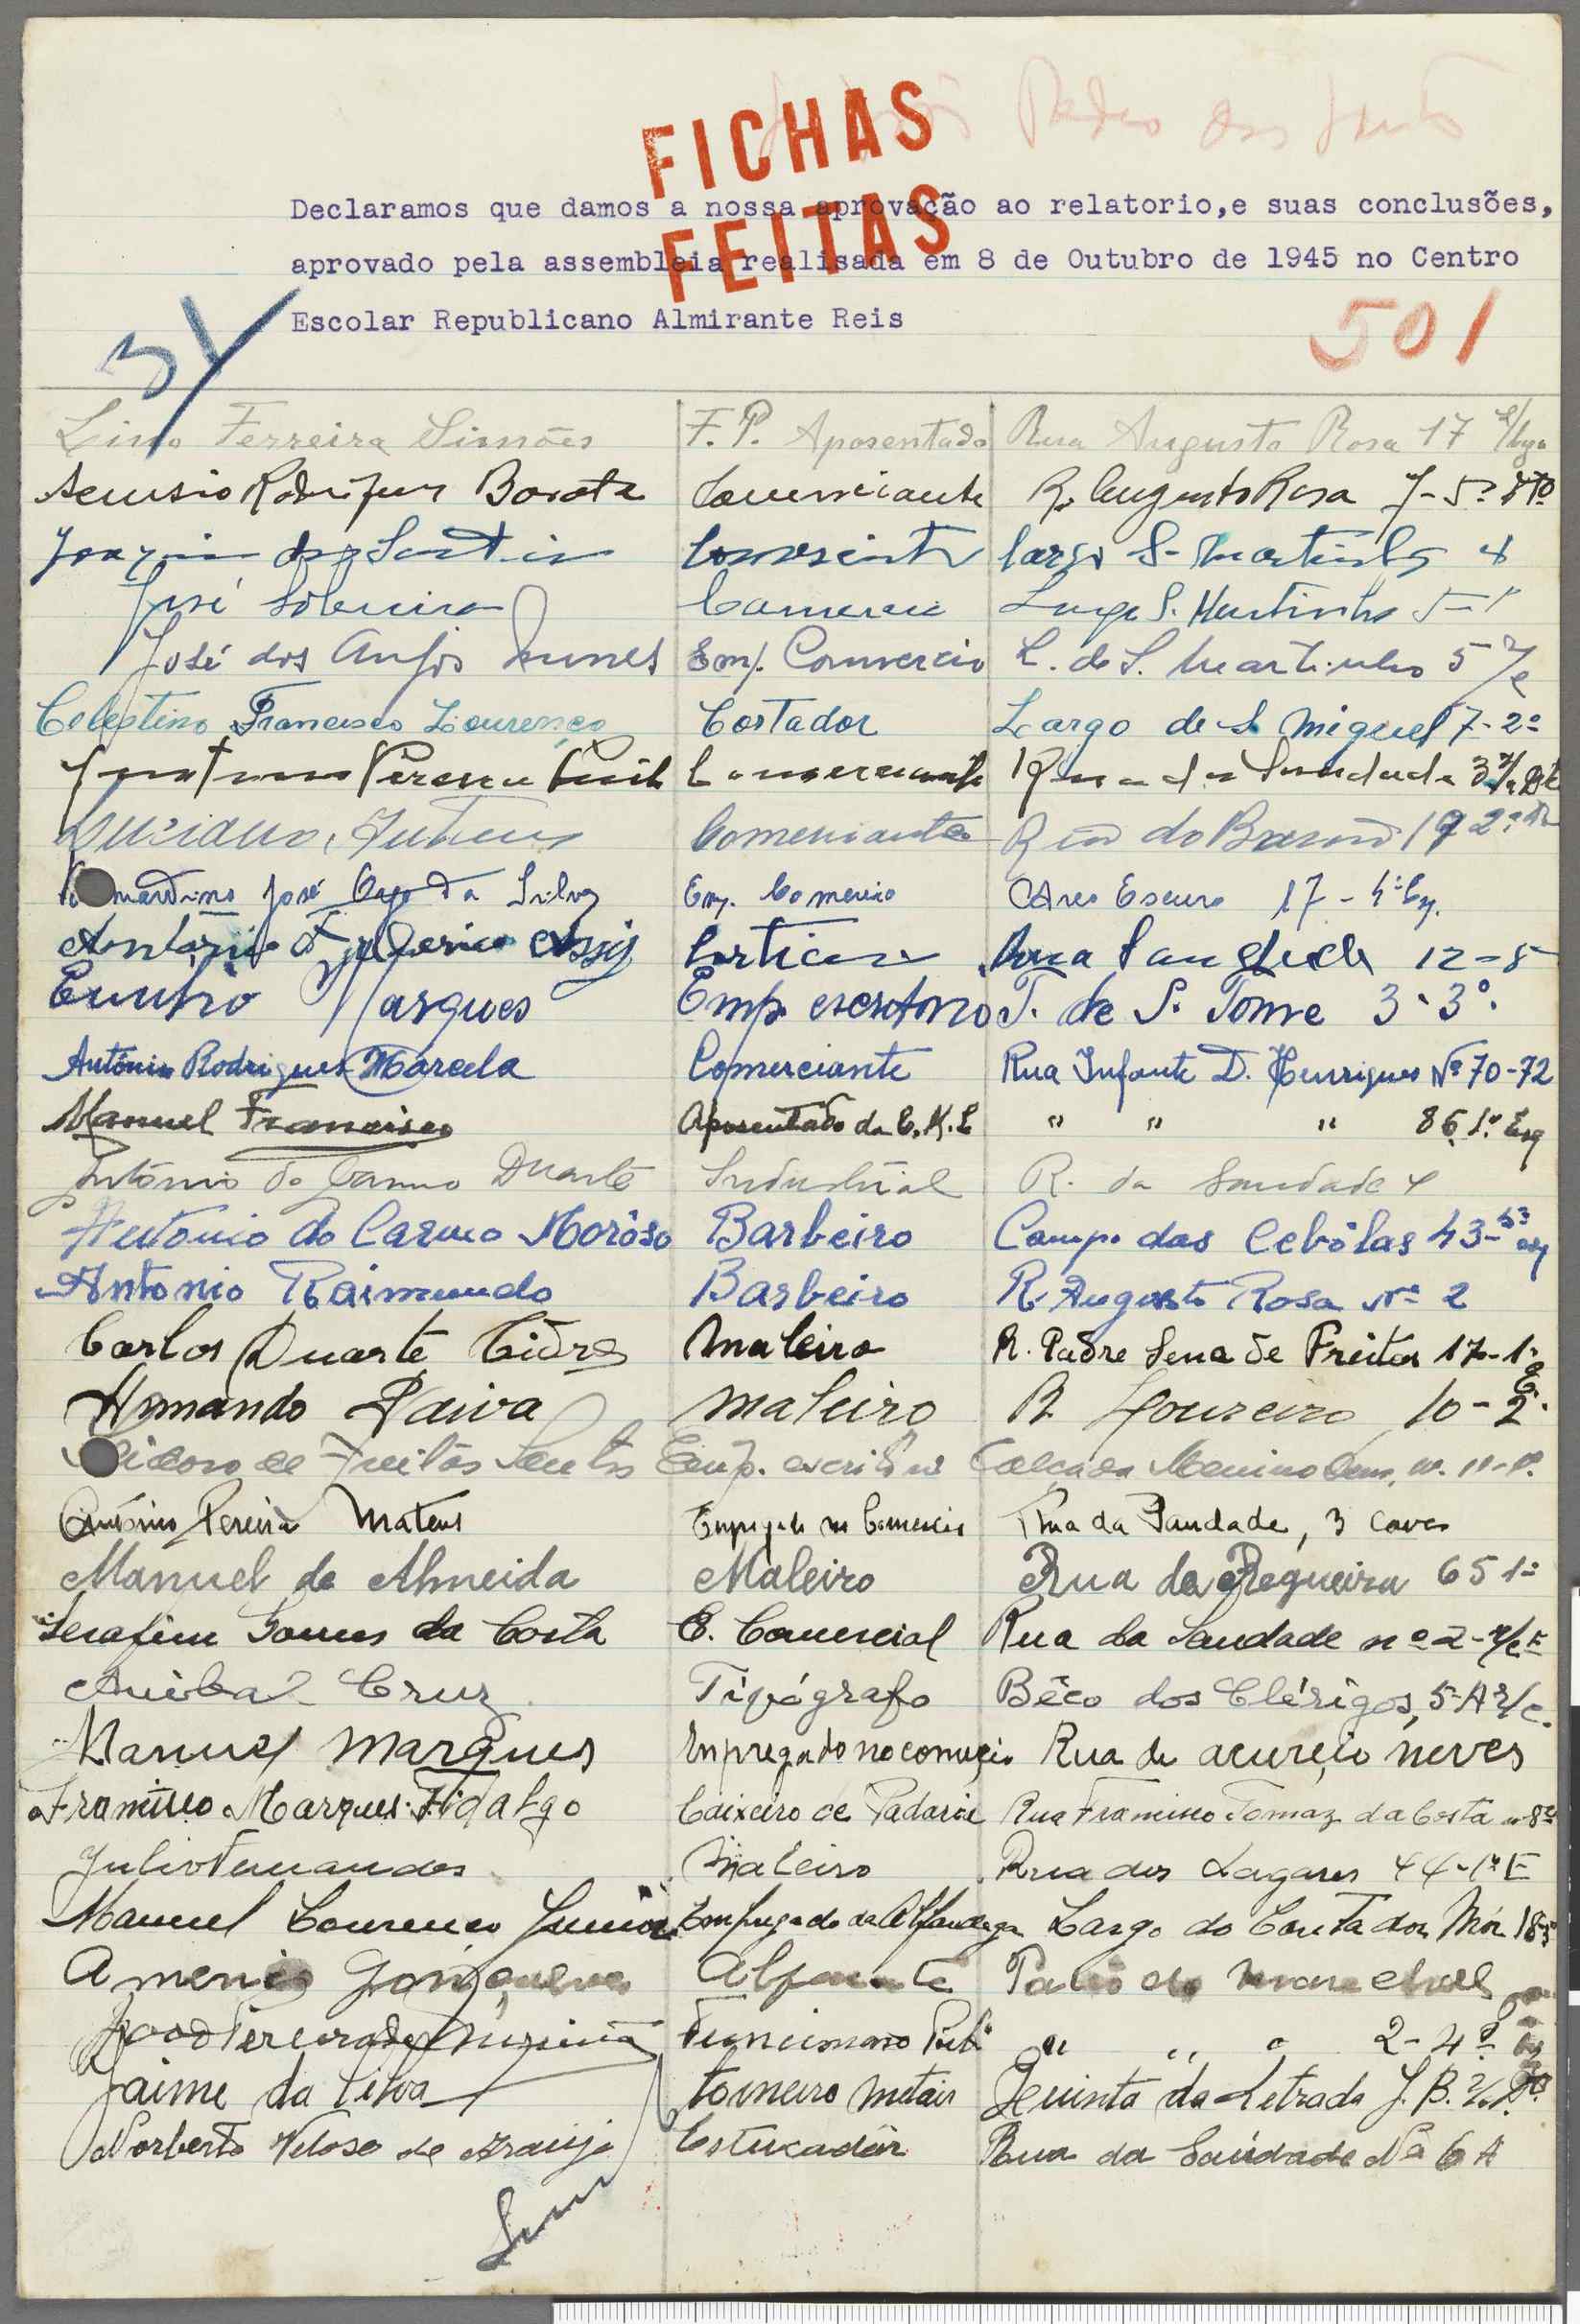 Pedro dos Santos
FICHAS
FEITAS
Declaramos que damos a nossa aprovação ao relatorio,e suas conclusões,
aprovado pela assembleia realisada em 8 de Outubro de 1945 no Centro
Escolar Republicano Almirante Reis
501
Ferreira Simões F. P. Aposentado Rua Augusto Rosa 17
Comerciante R. Augusto Rosa 7-5º
Largo S. Martinho
José Comercio Largo S. Martinho 5-1º
José dos Anjos Nunes Emp. Comercio L. de S. Martinho 5 r/c
Celestino Francisco Lourenço Cortador Largo de S. Miguel 7-2º
Pereira Comerciante Rua da Saudade
Luciano Comerciante Rua do Barão
José da Silva Emp. Comercio Arco Escuro 17-
António Assis
Marques Emp. escritorio T. de S. Tome 3-3º.
António Rodrigues Marcela Comerciante Rua Infante D. Henriques Nº 70-72
Manuel Francisco Aposentado da " " " 86, 1º Esq
António do Carmo Duarte Industrial R. da Saudade 4
Antonio do Carmo Morôso Barbeiro Campo das Cebôlas 43-
Antonio Raimundo Barbeiro R. Augusto Rosa Nº 2
Carlos Duarte Cidre Maleiro R. Padre Sena de Freitas 17-1º
Armando Paiva Maleiro R. Loureiro 10-2º
de Freitas Santos Emp. escritório Calçada Menino Deus,
António Pereira Mateus Empregado no Comercio Rua da Saudade, 3 cave
Manuel de Almeida Maleiro Rua da Regueira 65 1º
Serafim Gomes da Costa E. Comercial Rua da Saudade nº 2-r/c E
Anibal Cruz Tipógrafo Bêco dos Clérigos, 5-A r/c.
Manuel Marques Empregado no comercio Rua de acurcio neves
Francisco Marques Fidalgo Caixeiro de Padaria Rua Francisco Tomaz da Costa
Julio Fernandes Maleiro Rua dos Lagares 44-1º E
Manuel Lourenço Junior Empregado da Alfandega Largo do Contador Mór
Gonçalves Alfaiate Patio do
Pereira Funcionario " " " 2-4º
Jaime da Silva torneiro metais Quinta da Letrada J. B.
Norberto Veloso de Araujo Estucadôr Rua da Saúdade Nº 6 A